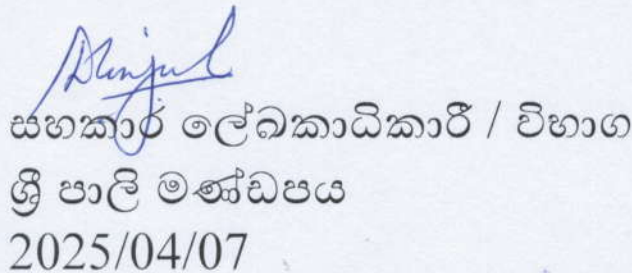 සහකාර ලේඛකාධිකාරී / විභාග
ශ්‍රී පාලි මණ්ඩපය
2025/04/07